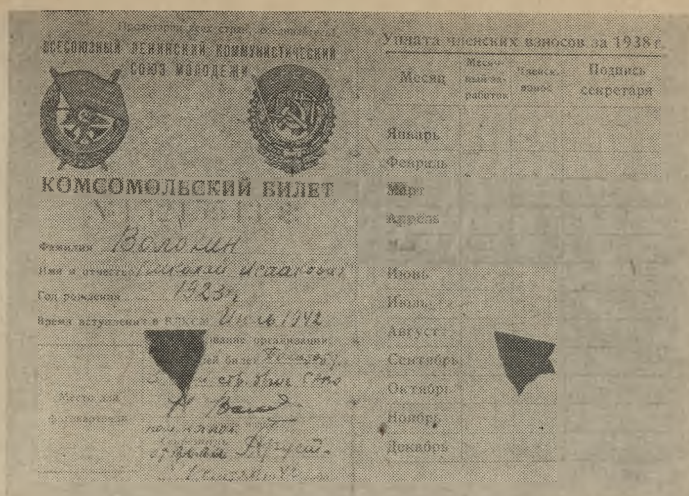 Пролетарии всех стран, соединяйтесь!
ВСЕСОЮЗНЫЙ ЛЕНИНСКИЙ КОММУНИСТИЧЕСКИЙ
СОЮЗ МОЛОДЕЖИ
КОМСОМОЛЬСКИЙ БИЛЕТ
№
Фамилия Волокин
Имя и отчество Николай Исаакович
Год рождения 1923 г.
Время вступления в ВЛКСМ Июль 1942
организации,
билет
стр. бриг
Место для
фотокарточки
Уплата членских взносов за 1938 г.
Месяц
Месяч-
ный за-
работок
Членск.
взнос
Подпись
секретаря
Январь
Февраль
Март
Апрель
Май
Июнь
Июль
Август
Сентябрь
Октябрь
Ноябрь
Декабрь